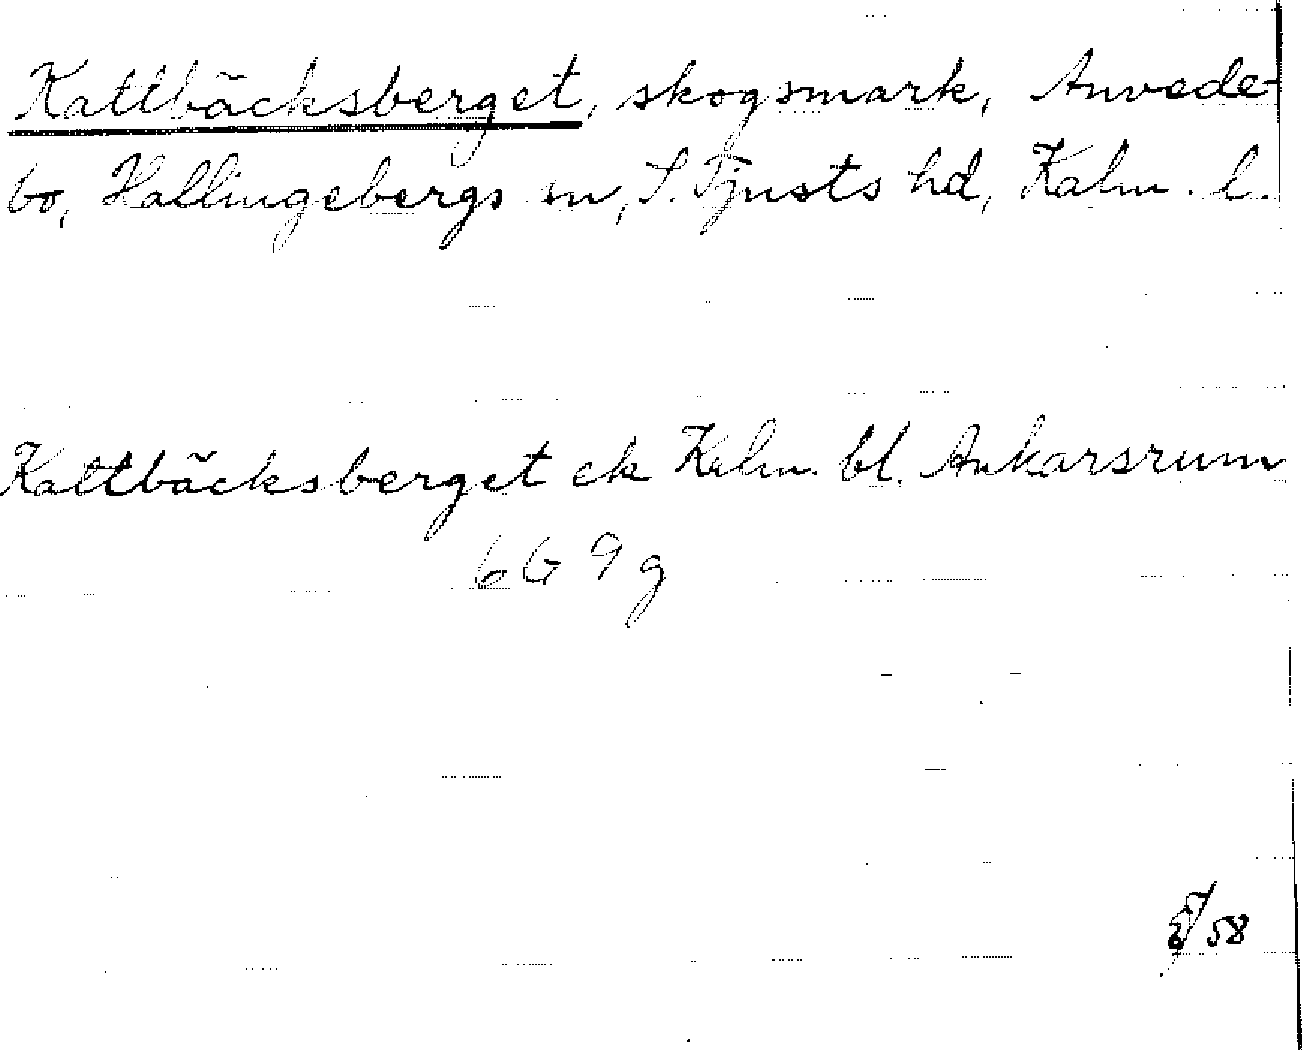 Kattbäcksberget, skogsmark, Anvede-
bo, Hallingebergs sn, S. Tjusts hd, Kalm. l.
Kattbäcksberget ek Kalm. bl. Ankarsrum
6G 9g
/58